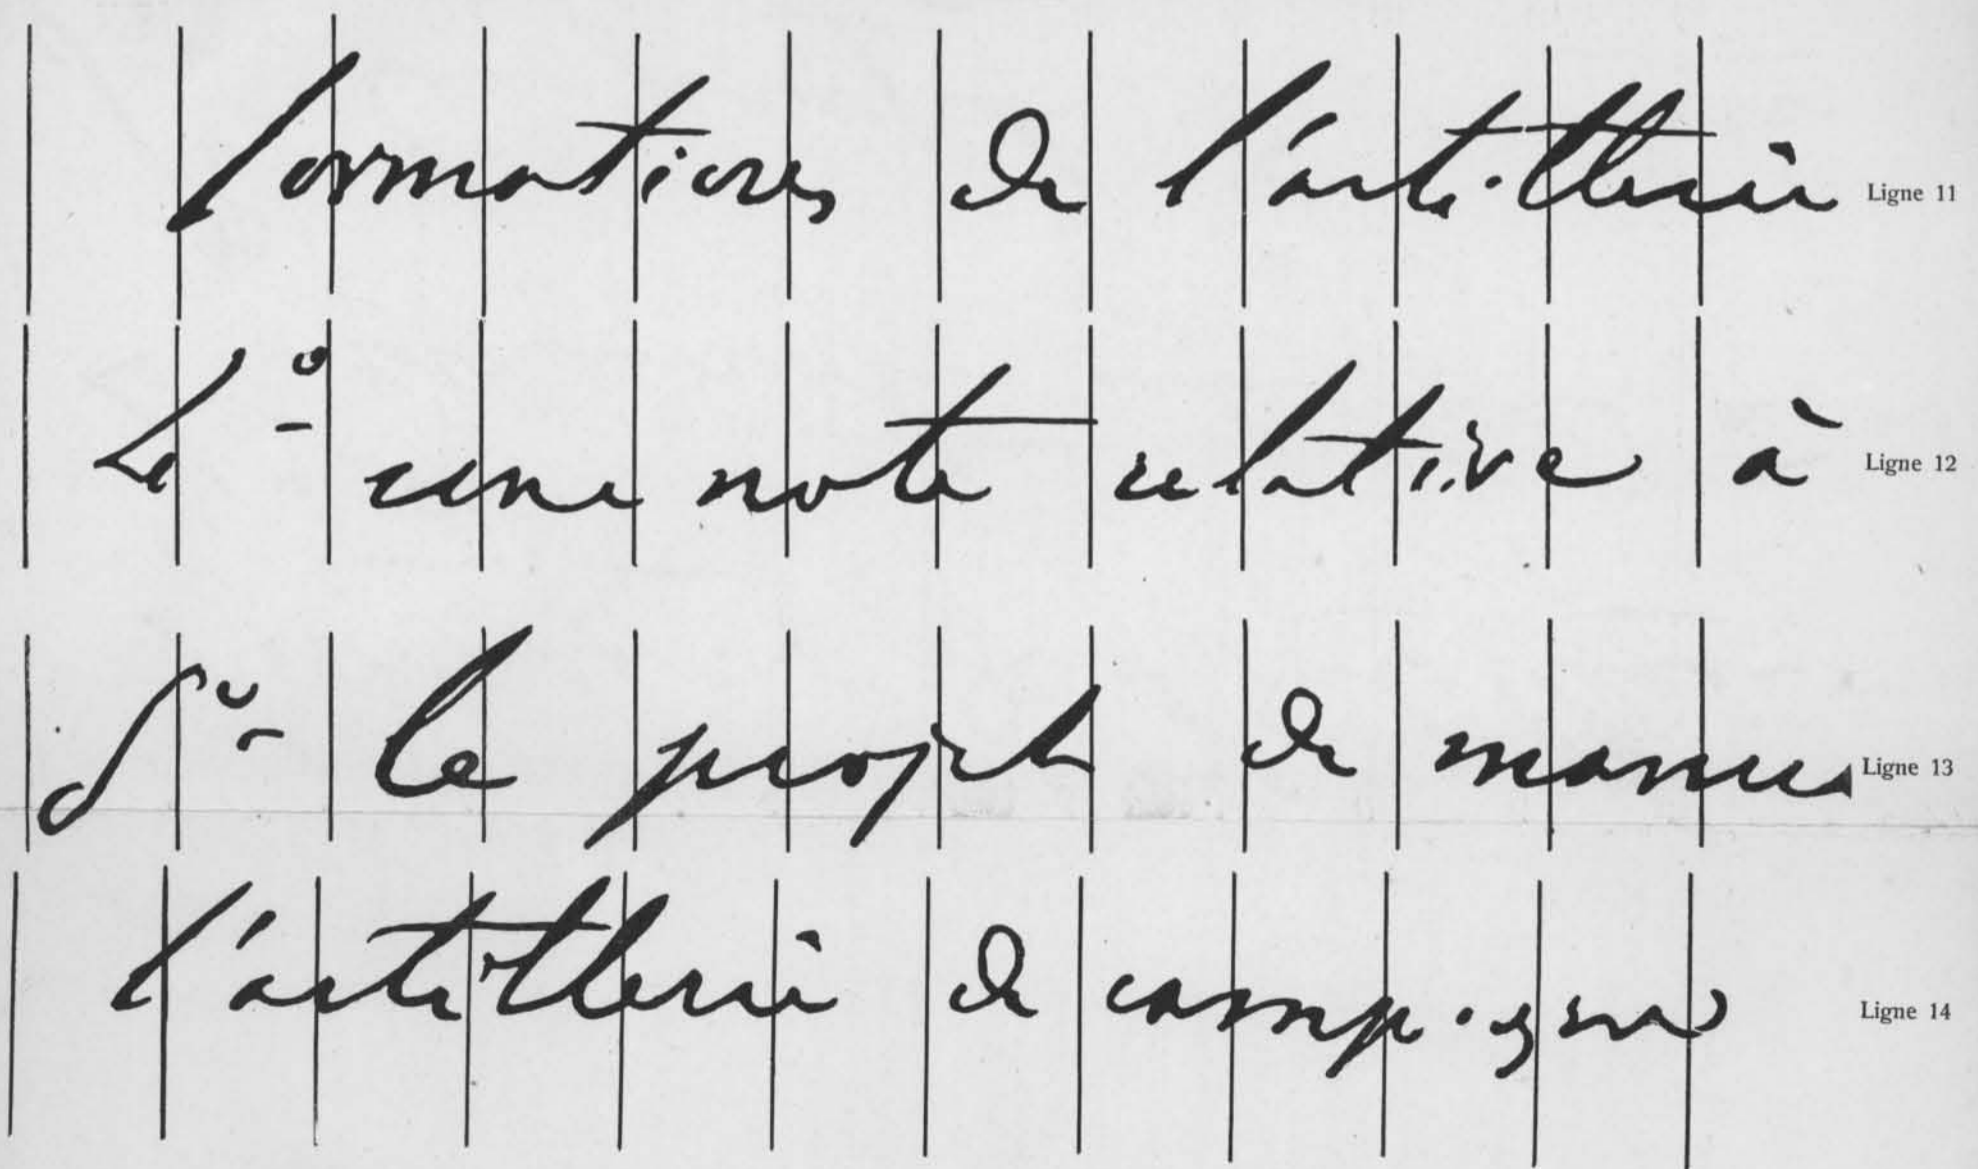 formations de l'artillerie Ligne 11
4º une note relative à Ligne 12
5º le projet de manue Ligne 13
l'artillerie de campagne Ligne 14